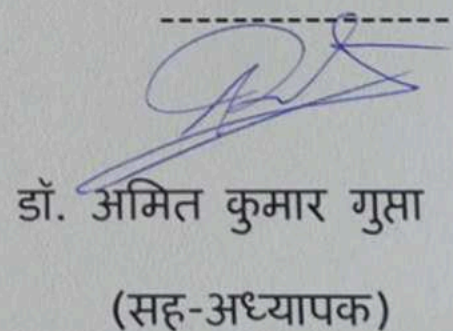 डॉ. अमित कुमार गुप्ता
(सह-अध्यापक)